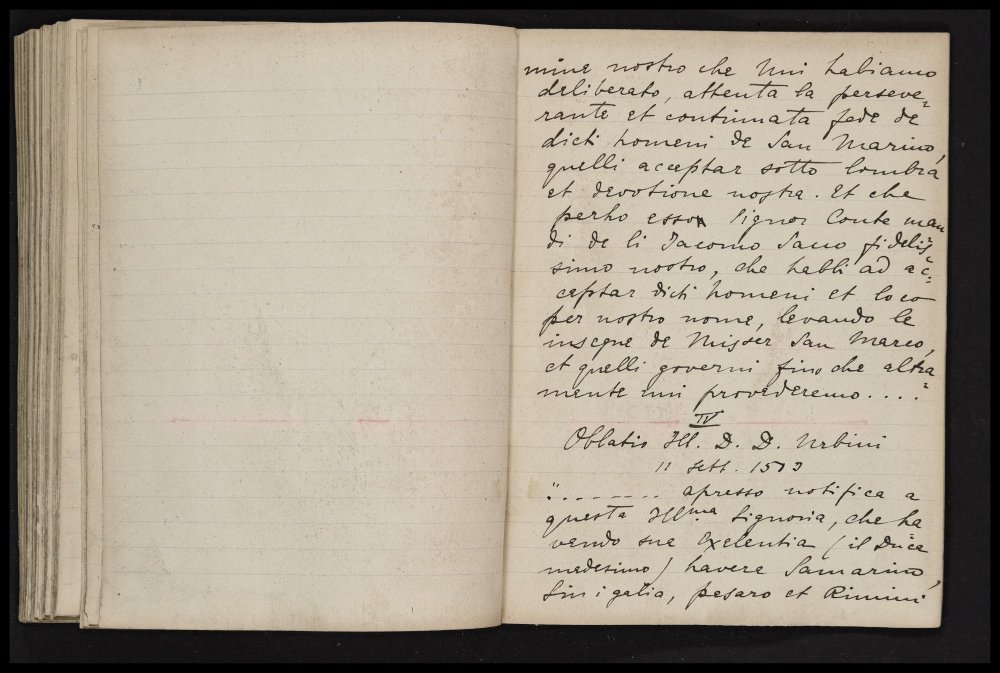 mine nostro che nui habiamo
deliberato, attenta la perseve=
rante et continuata fede de
dicti homeni de San Marino,
quelli acceptar sotto lombra
et devotione nostra. Et che
perho esso Signor Conte man=
di de li Jacomo Saco fidelis=
simo nostro, che habbi ad ac=
ceptar dicti homeni et loco
per nostro nome, levando le
insegne de Misser San Marco,
et quelli governi fino che altra=
mente nui provederemo....
IV
Oblatio Ill. D. D. Urbini
11 Sett. 1503
"....... apresso notifica a
questa Ill.ma Signoria, che ha
vendo sua Exelentia (il Duca
medesimo) havere Samarino,
Sinigalia, pesaro et Rimini